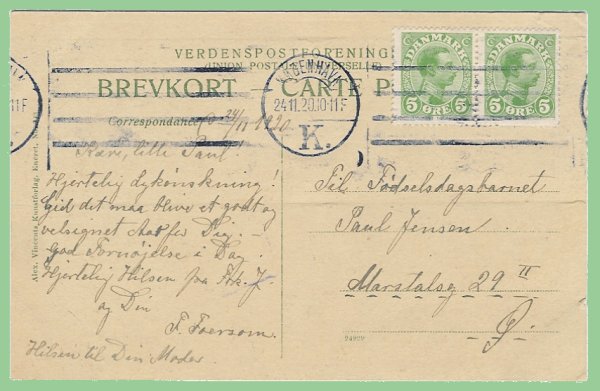 VERDENSPOSTFORENINGEN
(UNION POSTALE UNIVERSELLE)
BREVKORT — CARTE P
Correspondance
24/11 1920
Kære lille Paul
Hjertelig Lykønskning!
Gid det maa blive et godt og
velsignet Aar for Dig. —
god Fornøjelse i Dag.
Hjertelig Hilsen fra Frk. J.
og Din
F. Foersom.
Hilsen til Din Moder.
Alex. Vincents Kunstforlag. Eneret.
KØBENHAVN
24.11.20.10-11F
K.
DANMARK
5 ØRE 5
DANMARK
5 ØRE 5
Til Fødselsdagsbarnet
Paul Jensen
Marstalsg 29 II
Ø.
11F